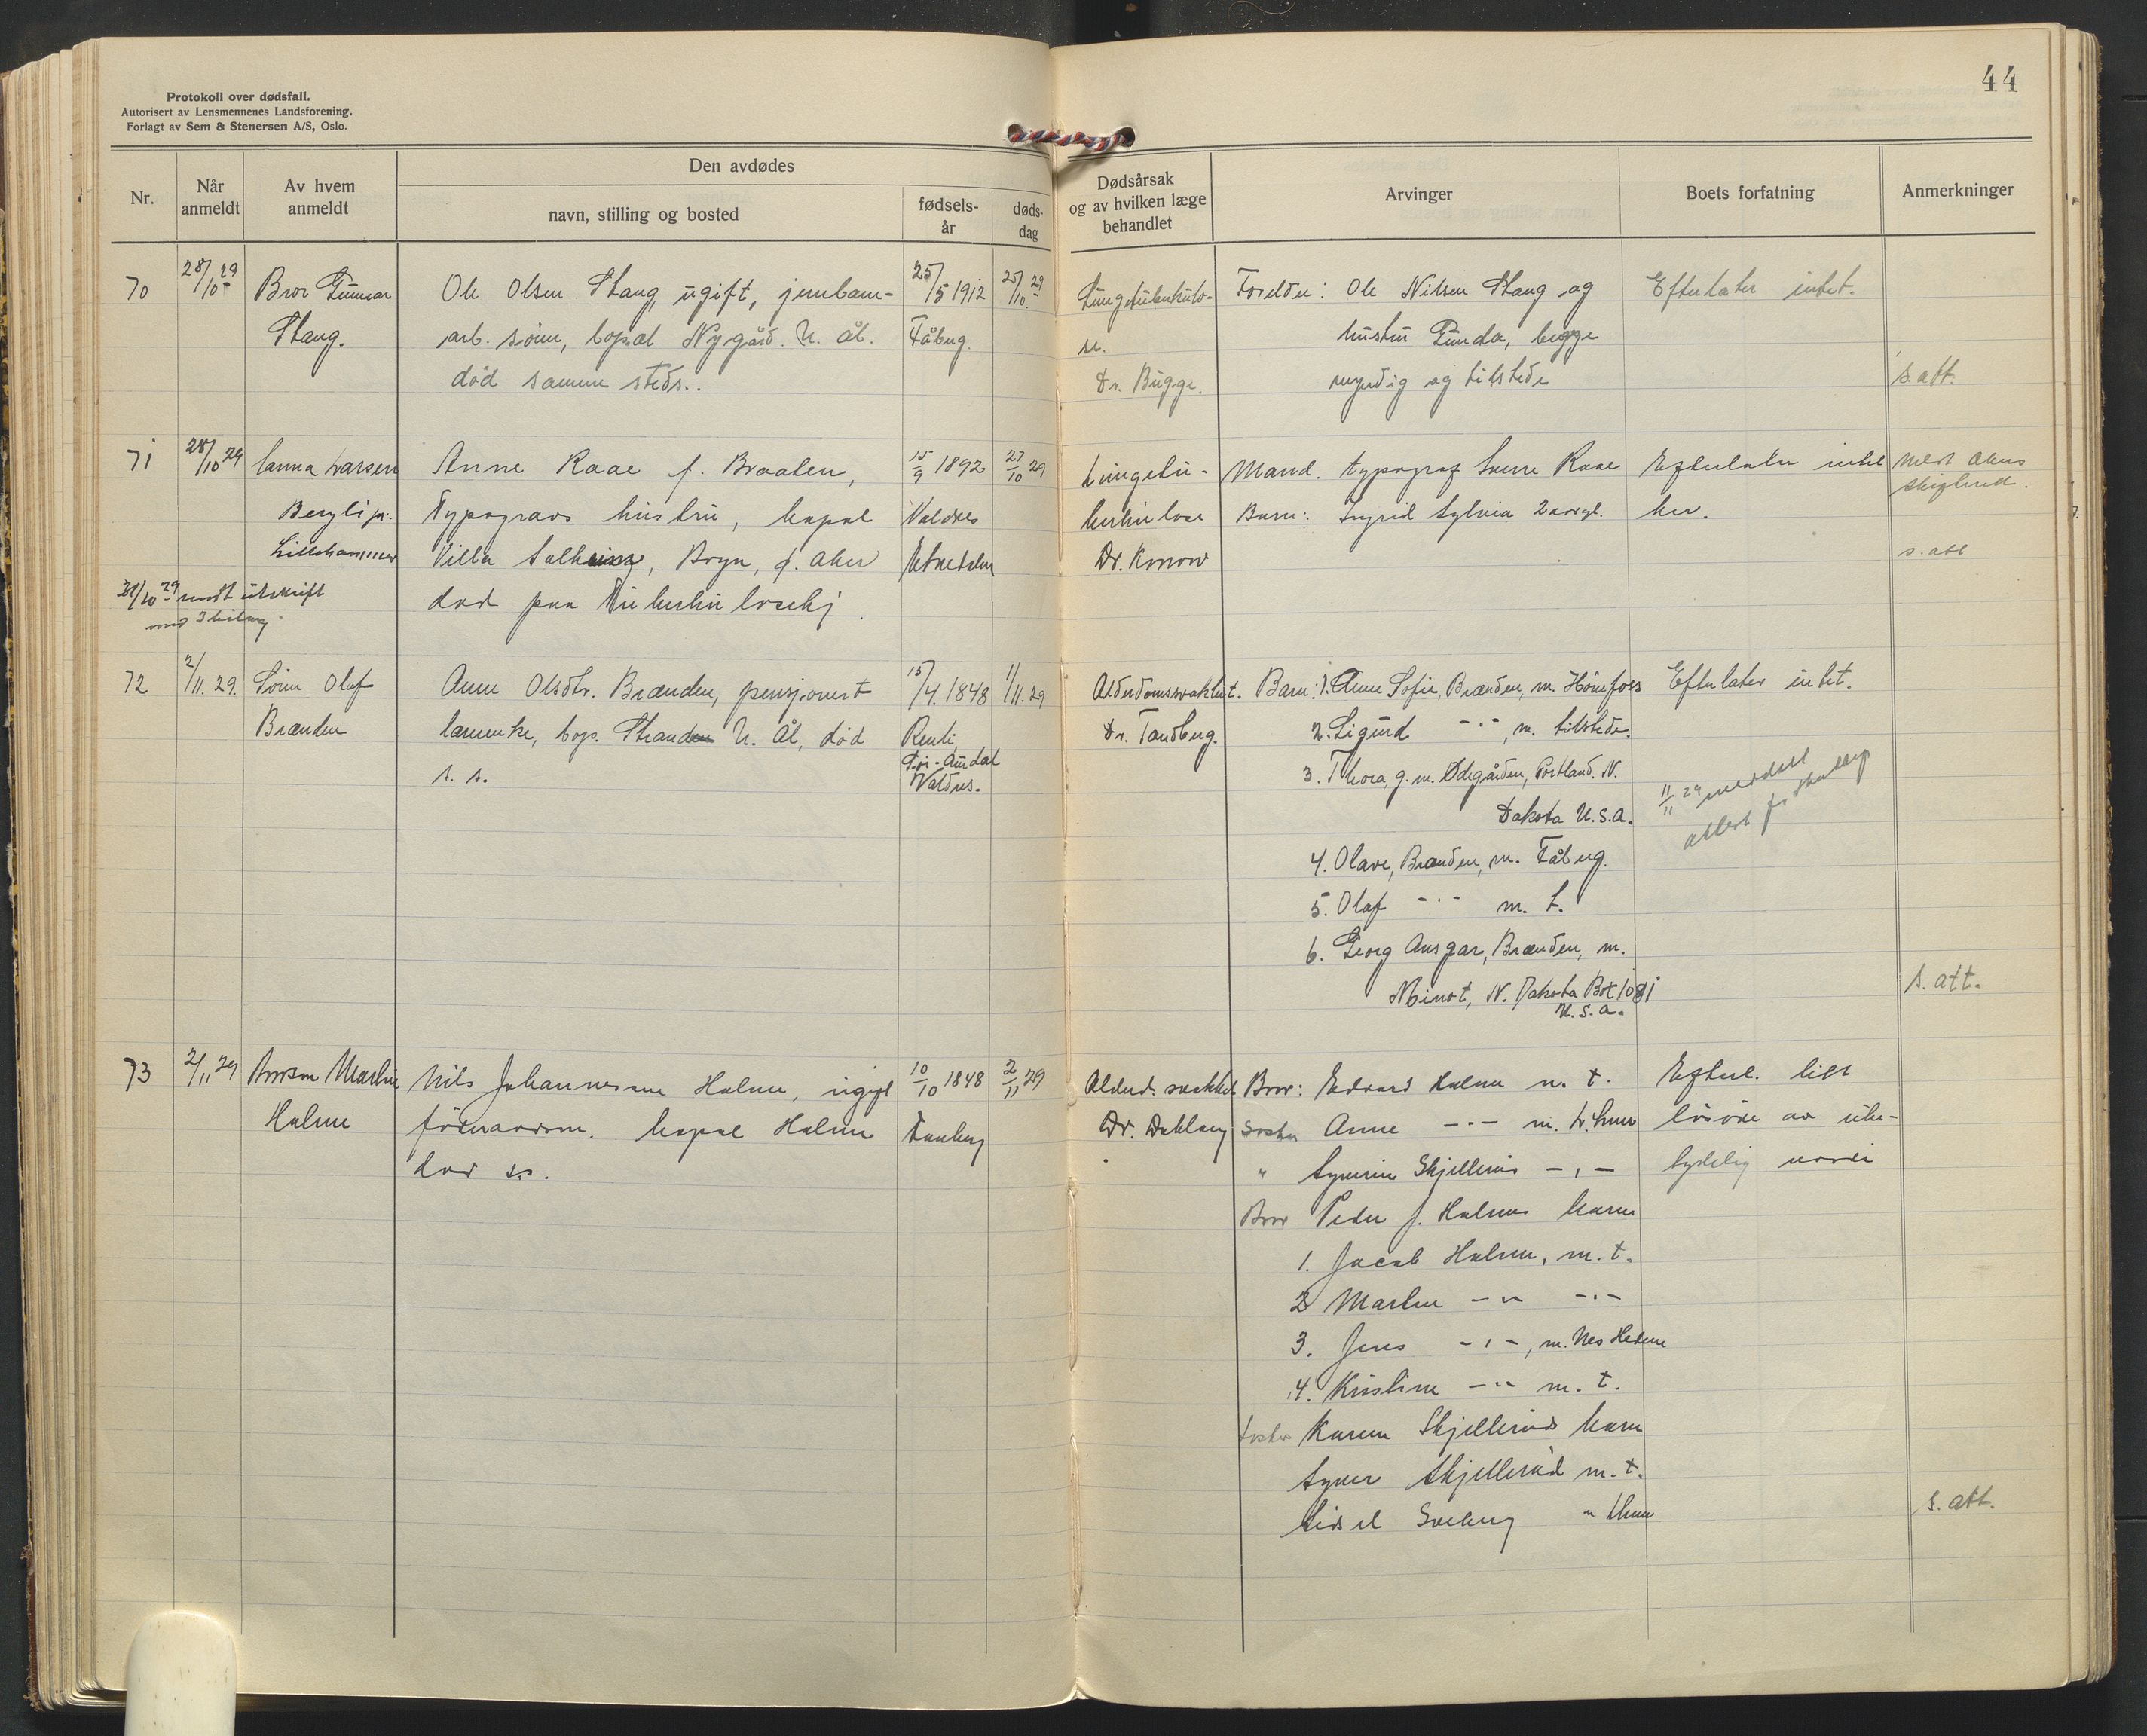 44
Protokoll over dødsfall.
Autorisert av Lensmennenes Landsforening.
Forlagt av Sem & Stenersen A/S, Oslo.
Nr.
Når anmeldt
Av hvem anmeldt
Den avdødes
navn, stilling og bosted
fødsels-år
døds-dag
Dødsårsak og av hvilken læge behandlet
Arvinger
Boets forfatning
Anmerkninger
70
28/10 29
Bror Gunnar
Stang.
Ole Olsen Stang, ugift, jernbane-
arb. sønn, bopæl Nygård. N. Ål.
død samme steds.
25/5 1912
Fåberg.
25/10 29
Lungetuberkulo-
se.
Dr. Bugge.
Foreldre: Ole Nilsen Stang og
hustru Gunda, begge
myndig og tilstede
Efterlater intet.
s. att.
71
28/10 29
Hanna Larsen
Bergli pr.
Lillehammer
31/10 29 sendt utskrift
med 3 bilag.
Anne Raae f. Braaten,
Typografs hustru, bopæl
Villa Solhaug, Bryn, Ø. Aker
død paa Tuberkulosehj.
15/9 1892
Valdres
Etnedalen
27/10 29
Lungetu-
berkulose
Dr. Konow
Mand. typograf Sverre Raae
Barn: Ingrid Sylvia 2 aar gl.
Efterlater intet
her.
Meldt Akers
skifterett.
s. att
72
2/11. 29.
Sønn Olaf
Brænden
Anne Olsdtr. Brænden, pensjonert
lærerenke, bop. Stranden N. Ål, død
s. s.
15/4. 1848
Renli,
Sør-Aurdal
Valdres.
1/11. 29
Alderdomssvakhet.
Dr. Tandberg.
Barn: 1. Anne Sofie, Brænden, m. Hønefoss
2. Sigurd -"-, m. tilstede.
3. Thora, g. m. Ødegården, Portland. N.
Dakota U.S.A.
4. Olave, Brænden, m. Fåberg.
5. Olaf -"- m. t.
6. Georg Ansgar, Brænden, m.
Minot, N. Dakota Box 1081
U.S.A.
Efterlater intet.
11/11 29 meddelt
attest fr
s. att.
73
2/11 29
Brorsøn Martin
Holme
Nils Johannessen Holme, ugift
føderaadsm. bopæl Holme
død s.s.
10/10 1848
Faaberg
2/11 29
Alderd. svakhet
Dr. Dahlberg
Bror: Edvard Holme m. t.
Søster Anne -"- m. L.hmer
" Synnøve Skjellerud -"-
Bror Peder J. Holmes barn
1. Jacob Holme, m. t.
2 Martin -"- -"-
3. Jens -"-, m. Nes Hedem
4. Kristine -"- m. t.
Søster Karen Skjelleruds barn
Syver Skjellerud m. t.
Sidsel Solberg " Lhmer
Efterl. litt
løsøre av ube-
tydelig verdi
s. att.